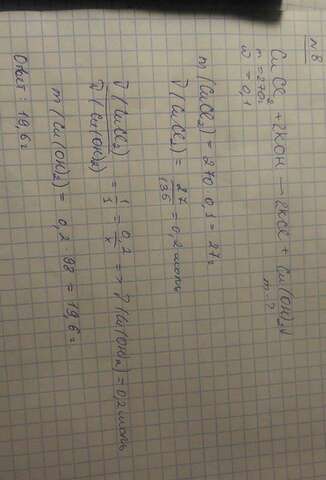 N 8
CuCl₂ + 2KOH → 2KCl + Cu(OH)₂↓
m = 270г m - ?
ω = 0,1
m (CuCl₂) = 270 · 0,1 = 27г
ν (CuCl₂) = 27/135 = 0,2 моль
ν (CuCl₂) / ν (Cu(OH)₂) = 1/1 = 0,2/x => ν (Cu(OH)₂) = 0,2 моль
m (Cu(OH)₂) = 0,2 · 98 = 19,6г
Ответ: 19,6г